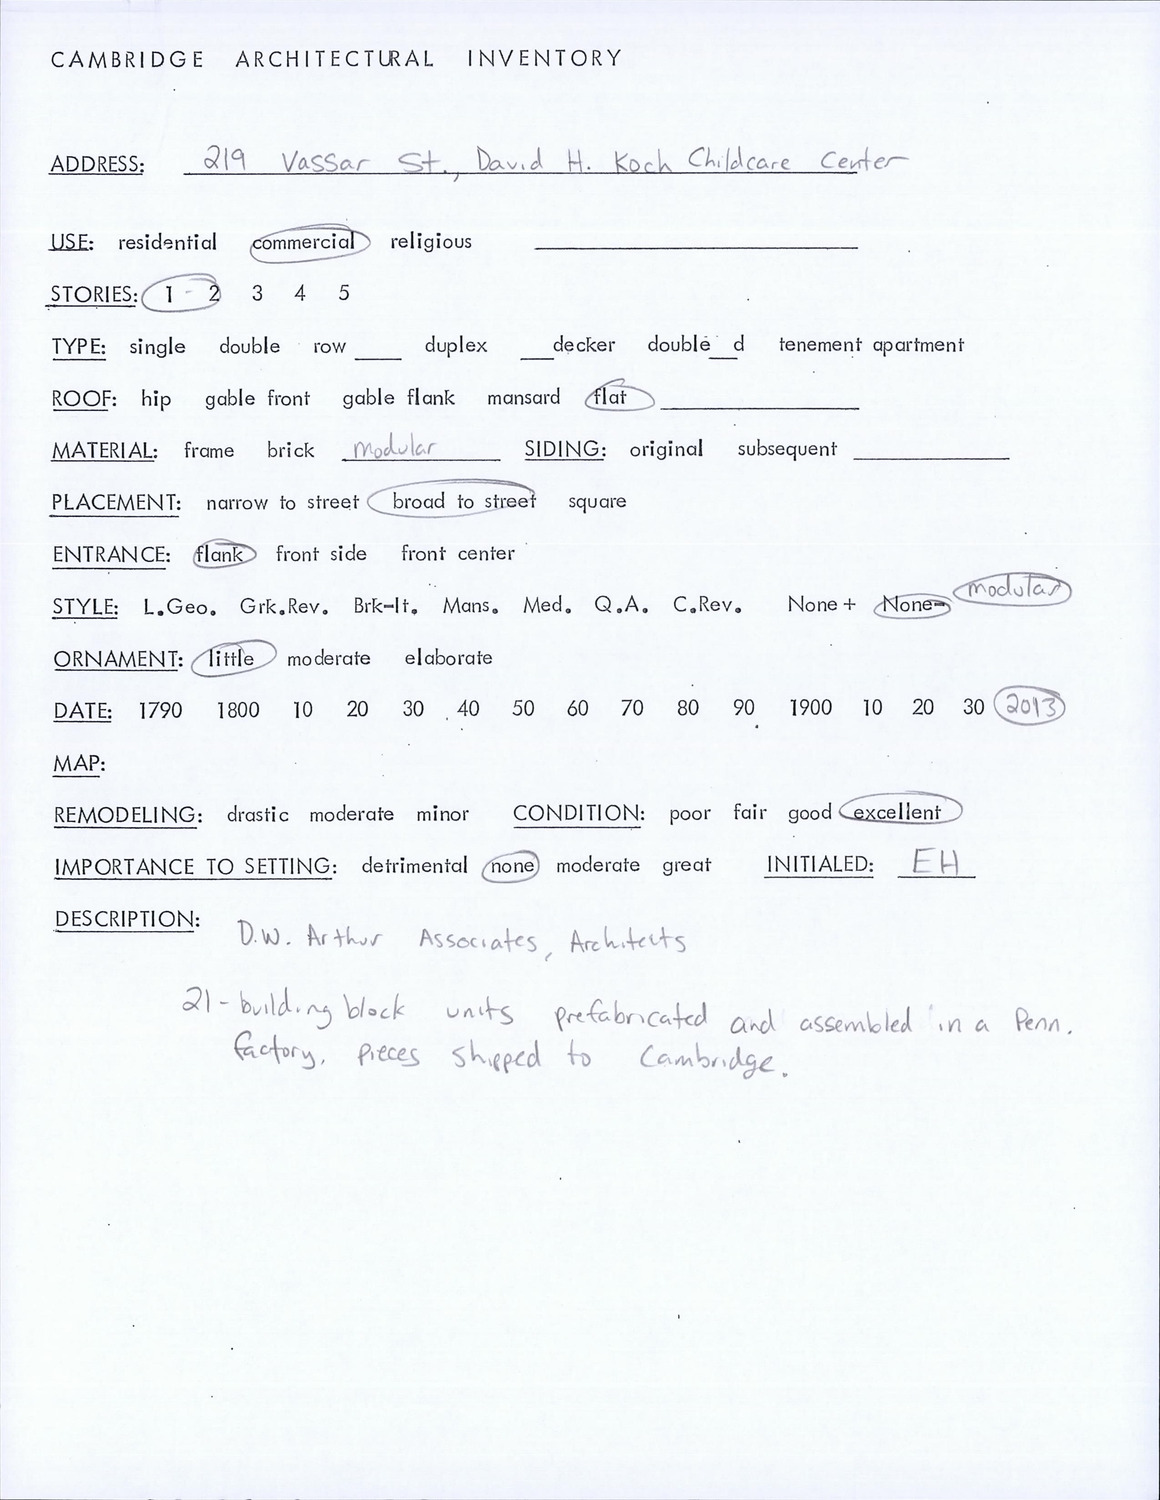 CAMBRIDGE ARCHITECTURAL INVENTORY
ADDRESS: 219 Vassar St., David H. Koch Childcare Center
USE: residential commercial religious
STORIES: 1 - 2 3 4 5
TYPE: single double row ____ duplex ___decker double__d tenement apartment
ROOF: hip gable front gable flank mansard flat
MATERIAL: frame brick modular SIDING: original subsequent
PLACEMENT: narrow to street broad to street square
ENTRANCE: flank front side front center
STYLE: L.Geo. Grk.Rev. Brk-It. Mans. Med. Q.A. C.Rev. None + None- modular
ORNAMENT: little moderate elaborate
DATE: 1790 1800 10 20 30 40 50 60 70 80 90 1900 10 20 30 2013
MAP:
REMODELING: drastic moderate minor CONDITION: poor fair good excellent
IMPORTANCE TO SETTING: detrimental none moderate great INITIALED: EH
DESCRIPTION:
D.W. Arthur Associates, Architects
21-building block units prefabricated and assembled in a Penn.
factory. pieces shipped to Cambridge.